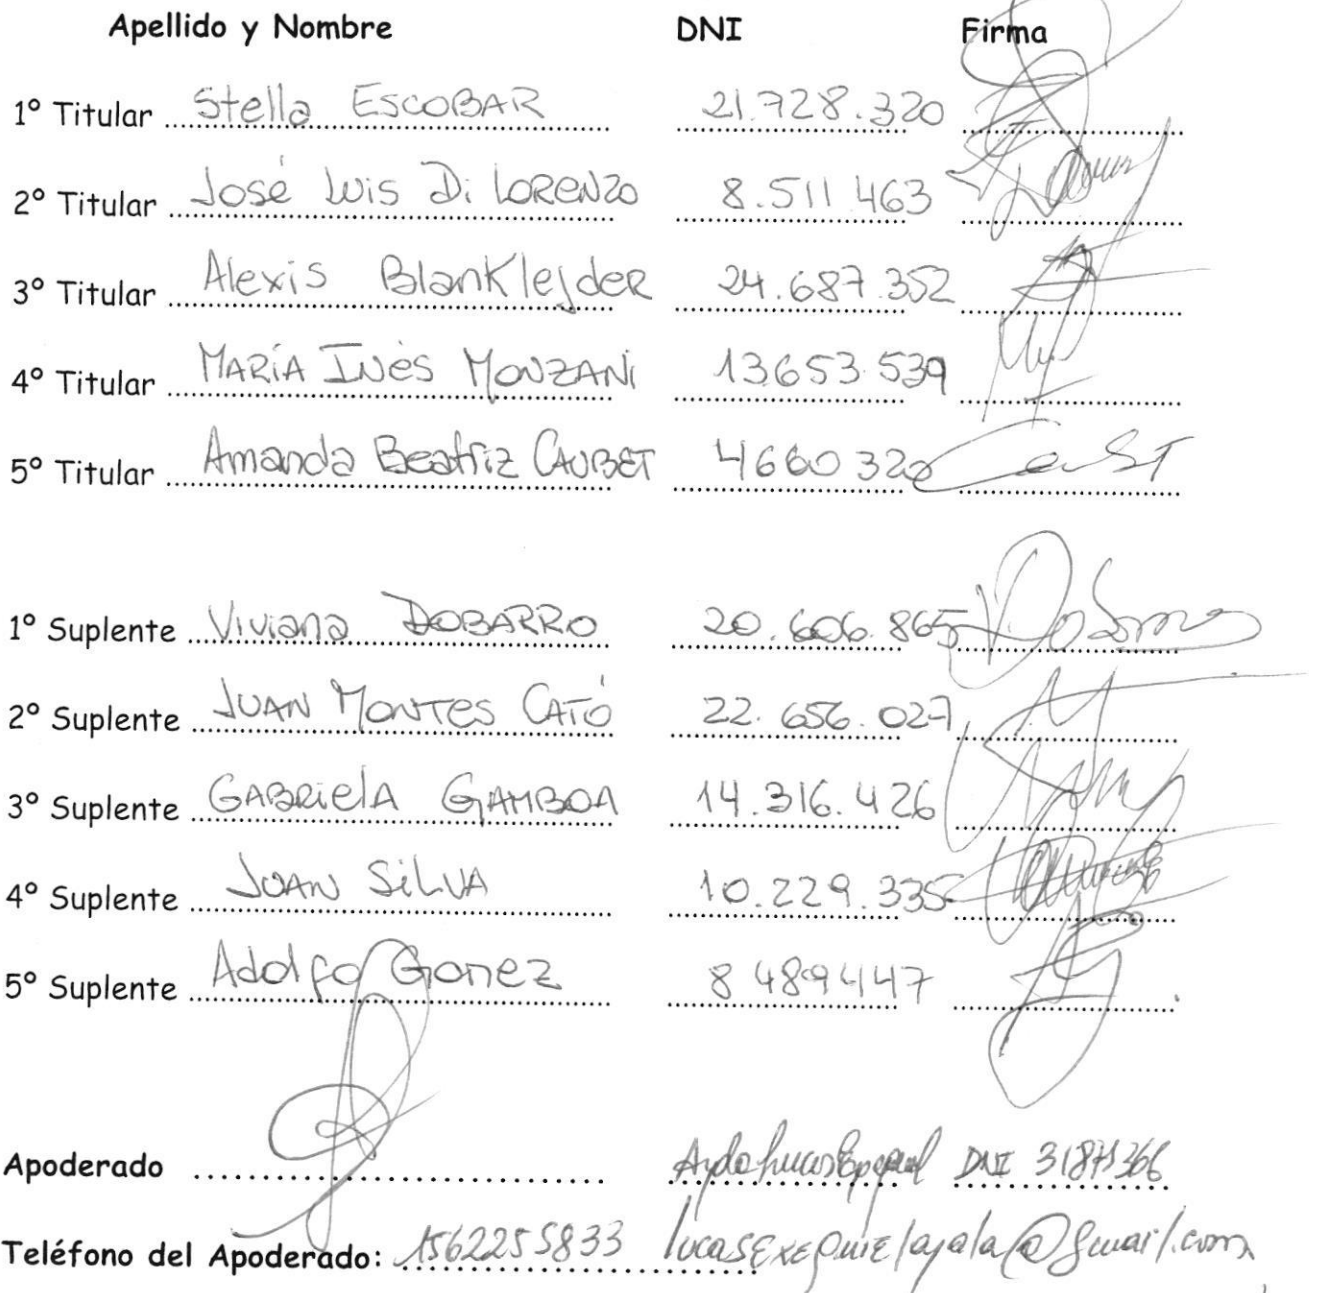 Apellido y Nombre DNI Firma
1º Titular Stella ESCOBAR 21.728.320
2º Titular José Luis Di LORENZO 8.511 463
3º Titular Alexis Blanklejder 24.687.352
4º Titular MARÍA INÉS MONZANI 13653.539
5º Titular Amanda Beatriz CAUBET 4660 320
1º Suplente Viviana DOBARRO 20.606.865
2º Suplente JUAN MONTES CATÓ 22.656.027
3º Suplente GABRIELA GAMBOA 14.316.426
4º Suplente JUAN SILVA 10.229.335
5º Suplente Adolfo Gomez 8 489447
Apoderado Lucas DNI 31871366
Teléfono del Apoderado: 1562255833 lucasexequielayala@gmail.com